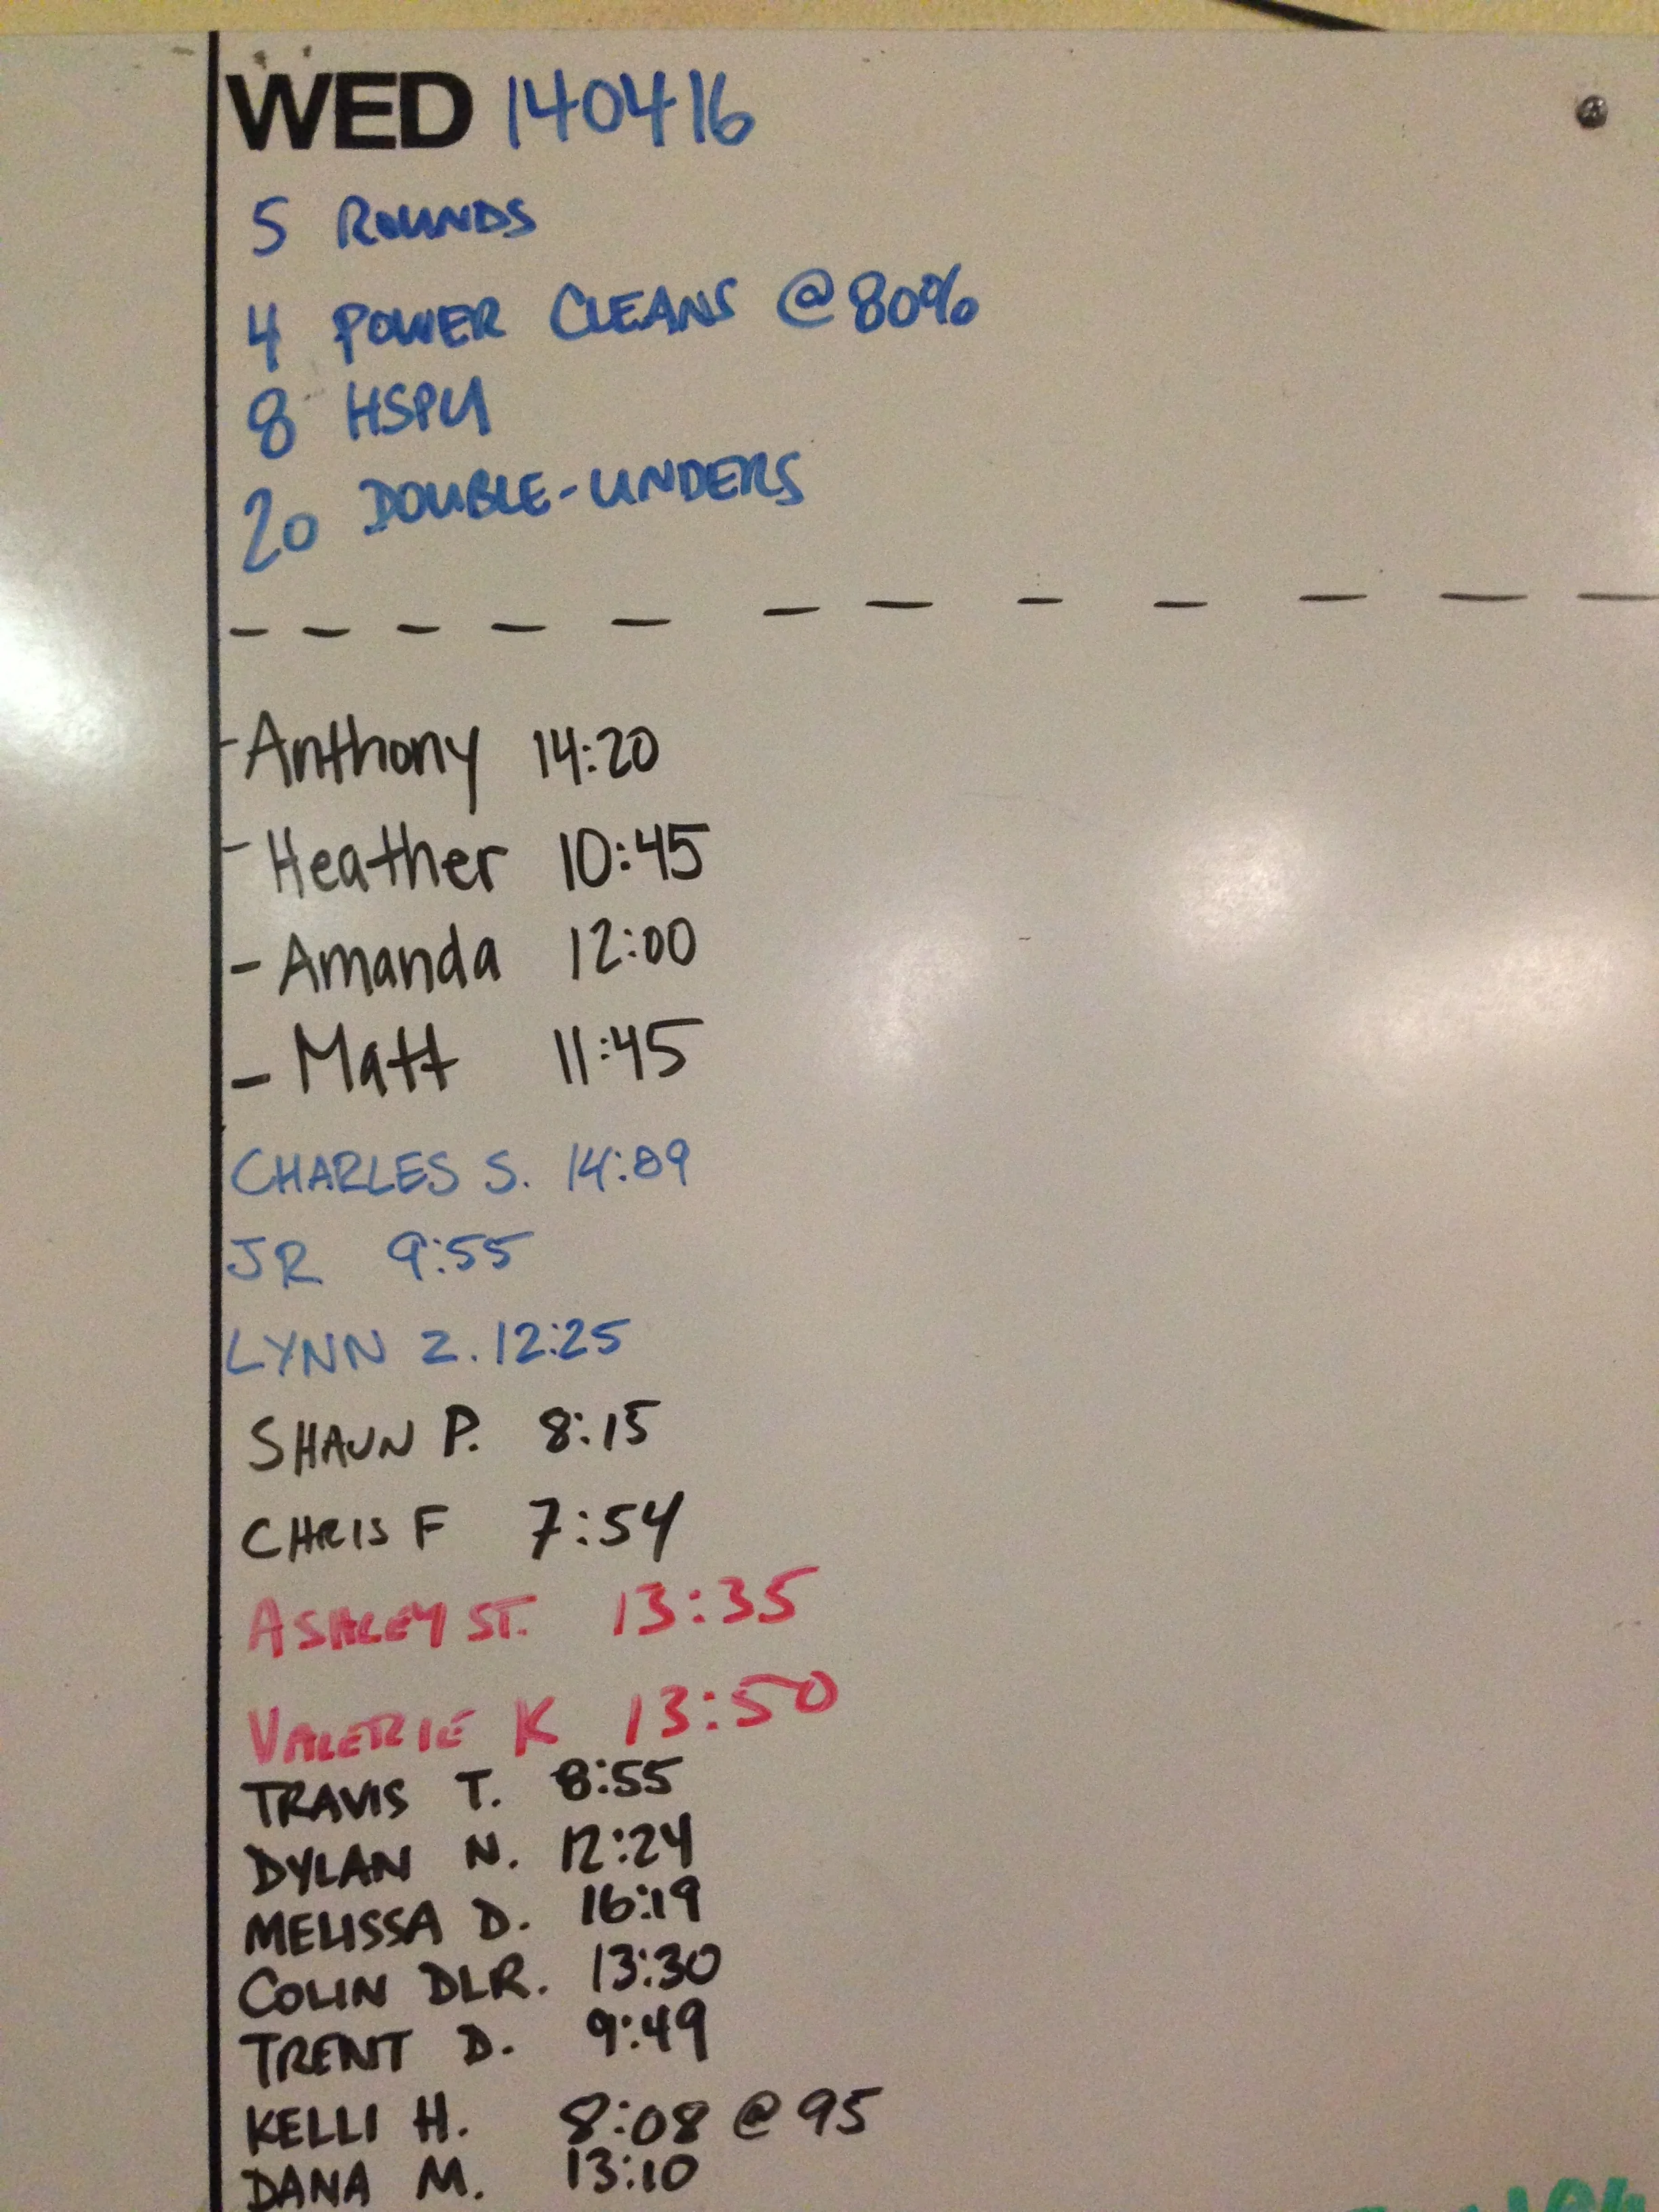 WED 140416
5 ROUNDS
4 POWER CLEANS @ 80%
8 HSPU
20 DOUBLE-UNDERS
- Anthony 14:20
- Heather 10:45
- Amanda 12:00
- Matt 11:45
CHARLES S. 14:09
JR 9:55
LYNN Z. 12:25
SHAUN P. 8:15
CHRIS F 7:54
ASHLEY ST. 13:35
VALERIE K 13:50
TRAVIS T. 8:55
DYLAN N. 12:24
MELISSA D. 16:19
COLIN DLR. 13:30
TRENT D. 9:49
KELLI H. 8:08 @ 95
DANA M. 13:10